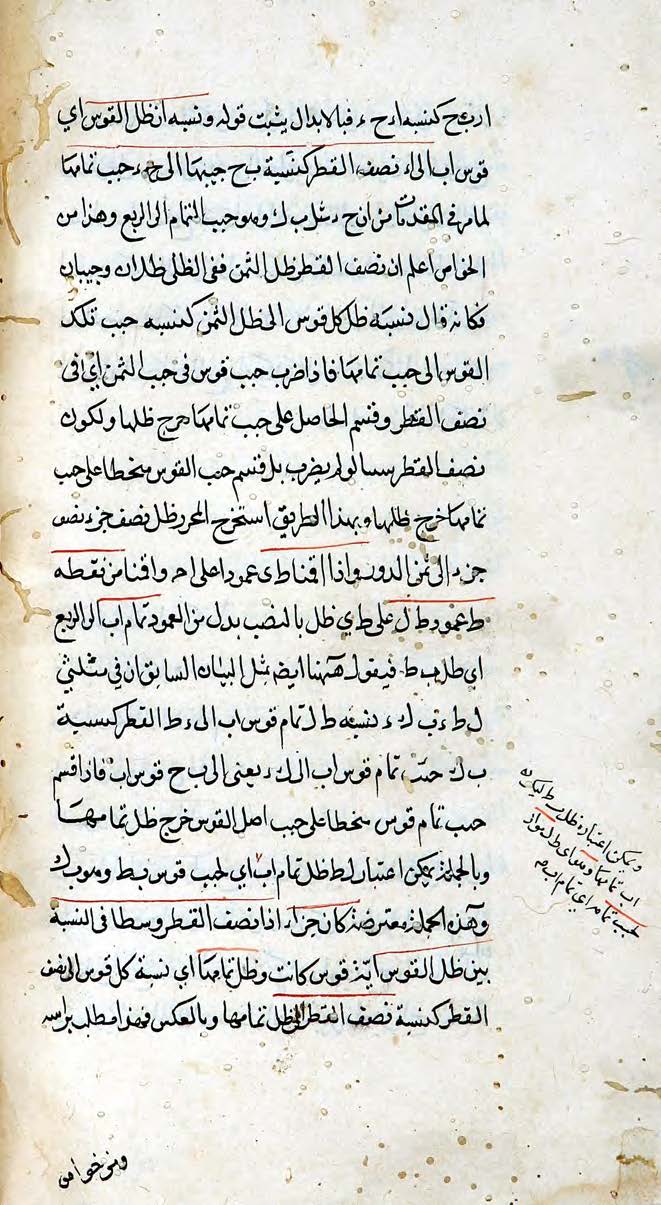 ا ر ب ح كنسبة ا ء ح ء فبالابدال يثبت قوله ونسبة ا ن ظل القوس اي
قوس اب الى اء نصف القطر كنسبة ب ح جيبها الى ح ء جيب تمامها
لما مر في المقدمات من ان ح ء مثل ب ك وهو جيب التمام الى الربع وهذا من
الخواص اعلم ان نصف القطر ظل الثمن ففي الظلي ظلان وجيبان
فكانه قال نسبة ظل كل قوس الى ظل الثمن كنسبة جيب تلك
القوس الى جيب تمامها فاذا ضرب جيب قوس في جيب الثمن اي في
نصف القطر وقسم الحاصل على جيب تمامها خرج ظلها ولكون
نصف القطر لم يضرب بل قسم جيب القوس منحطا على جيب
تمامها خرج ظلها وبهذا الطريق استخرج المحرر ظل نصف جزء نصف
جزء الى ثمن الدور واذا اقنا ط ى عمودا على ا ح واقنا من نقطة
ط عمود ط ل على ط ي ظل بالنصب بدل من العمود تمام اب الى الربع
اي ط ب ط فيقول ههنا ايضا بمثل البيان السابق ان في مثلثي
ل ط ء ب ك ء نسبة ط ل تمام قوس اب الى ء ط القطر كنسبة
ب ك جيب تمام قوس اب الى ك ء يعني الى ب ح قوس اب فاذا قسم
جيب تمام قوس منحطا على جيب اصل القوس خرج ظل تمامها
وبالجملة يمكن اعتبار لط ظل تمام اب اي لجيب قوس بط وهو ب ك
وهذه الجملة معترضة كان جزاء اذا نصف القطر وسطا في النسبة
بين ظل القوس اية قوس كانت وظل تمامها اي نسبة كل قوس الى نصف
القطر كنسبة نصف القطر الى ظل تمامها وبالعكس فهذا مطلب براسه
ويمكن اعتبار ظل ب ط ليكون
اب تمامها وهو اي ط ل مواز
لجيب تمامه اي تمام اب م
ومن خواص